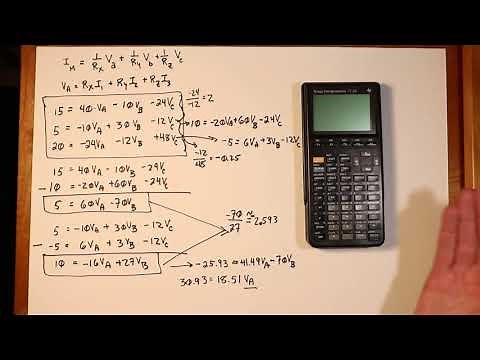 I_M = 1/R_X V_a + 1/R_Y V_b + 1/R_Z V_c
V_A = R_X I_1 + R_Y I_2 + R_Z I_3
15 = 40V_A - 10V_B - 24V_C
5 = -10V_A + 30V_B - 12V_C
20 = -24V_A - 12V_B + 48V_C
-24/-12 = 2
10 = -20V_A + 60V_B - 24V_C
-5 = 6V_A + 3V_B - 12V_C
-12/48 = -0.25
15 = 40V_A - 10V_B - 24V_C
- 10 = -20V_A + 60V_B - 24V_C
5 = 60V_A - 70V_B
5 = -10V_A + 30V_B - 12V_C
- -5 = 6V_A + 3V_B - 12V_C
10 = -16V_A + 27V_B
-70/27 ≈ -2.593
-25.93 = 41.49V_A - 70V_B
30.93 = 18.51 V_A
Texas Instruments TI-86